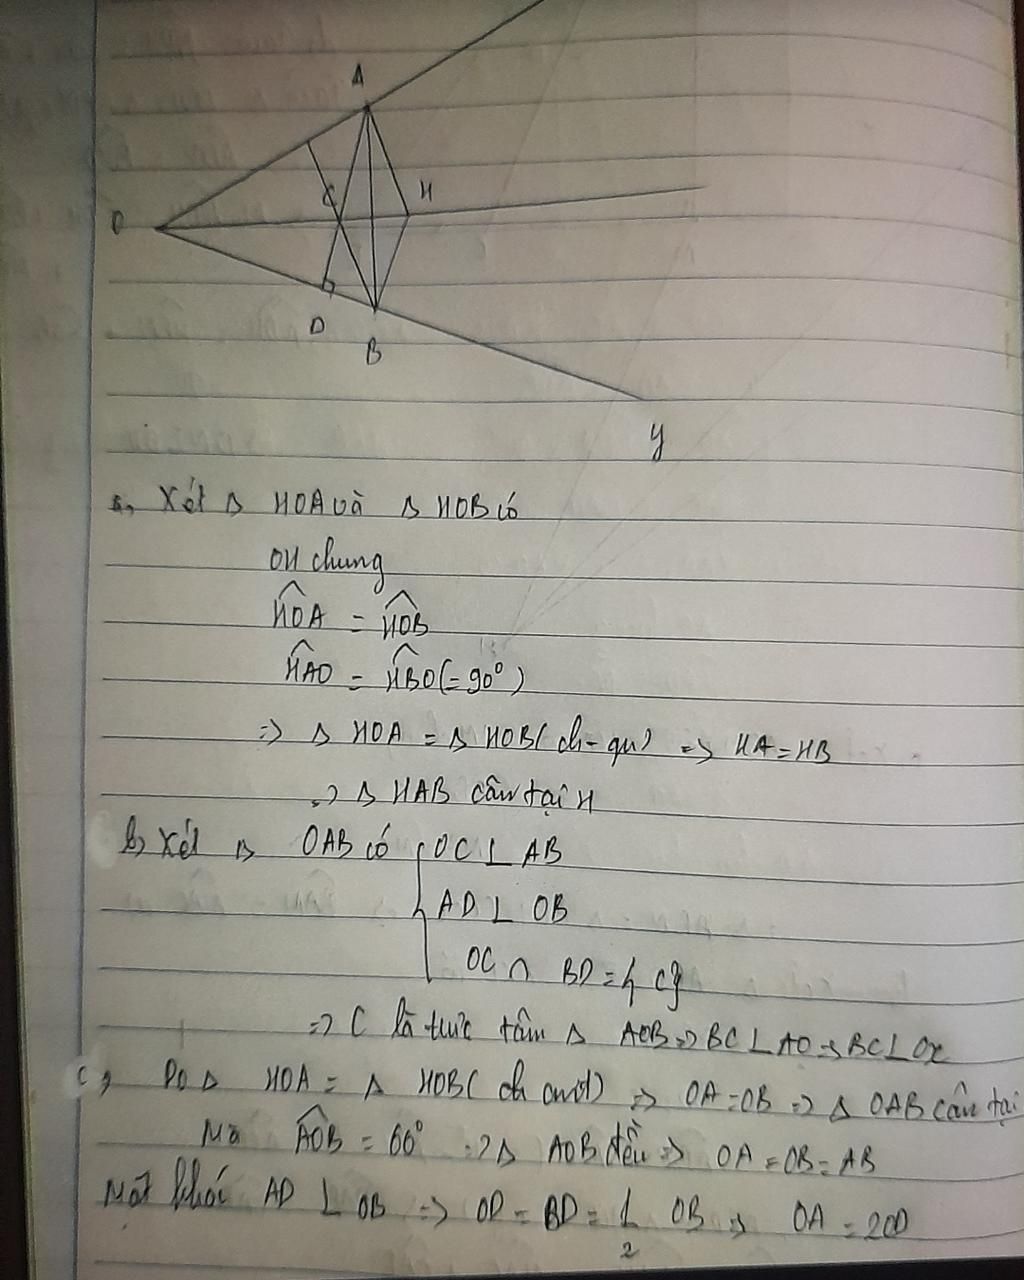 A
C
H
O
D
B
y
a, Xét Δ HOA và Δ HOB có
OH chung
HOA = HOB
HAO = HBO (= 90°)
=> Δ HOA = Δ HOB ( ch - gn ) => HA = HB
=> Δ HAB cân tại H
b, Xét Δ OAB có { OC ⊥ AB
AD ⊥ OB
OC ∩ BD = { C }
=> C là trực tâm Δ AOB => BC ⊥ AO => BC ⊥ Ox
c, Do Δ HOA = Δ HOB ( ch => OA = OB => Δ OAB cân tại
Mà AOB = 60° => Δ AOB đều => OA = OB = AB
Mặt khác AD ⊥ OB => OD = BD = 1/2 OB => OA = 2OD